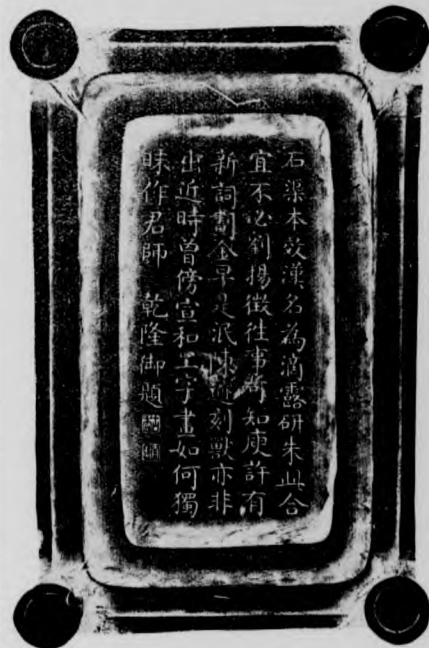 石渠本效漢名為滴露研朱此合
宜不必劉揚徵往事知庾許有
新詞劃金早是泯陳迹刻獸亦非
出近時曾傍宣和工字畫如何獨
昧作君師 乾隆御題